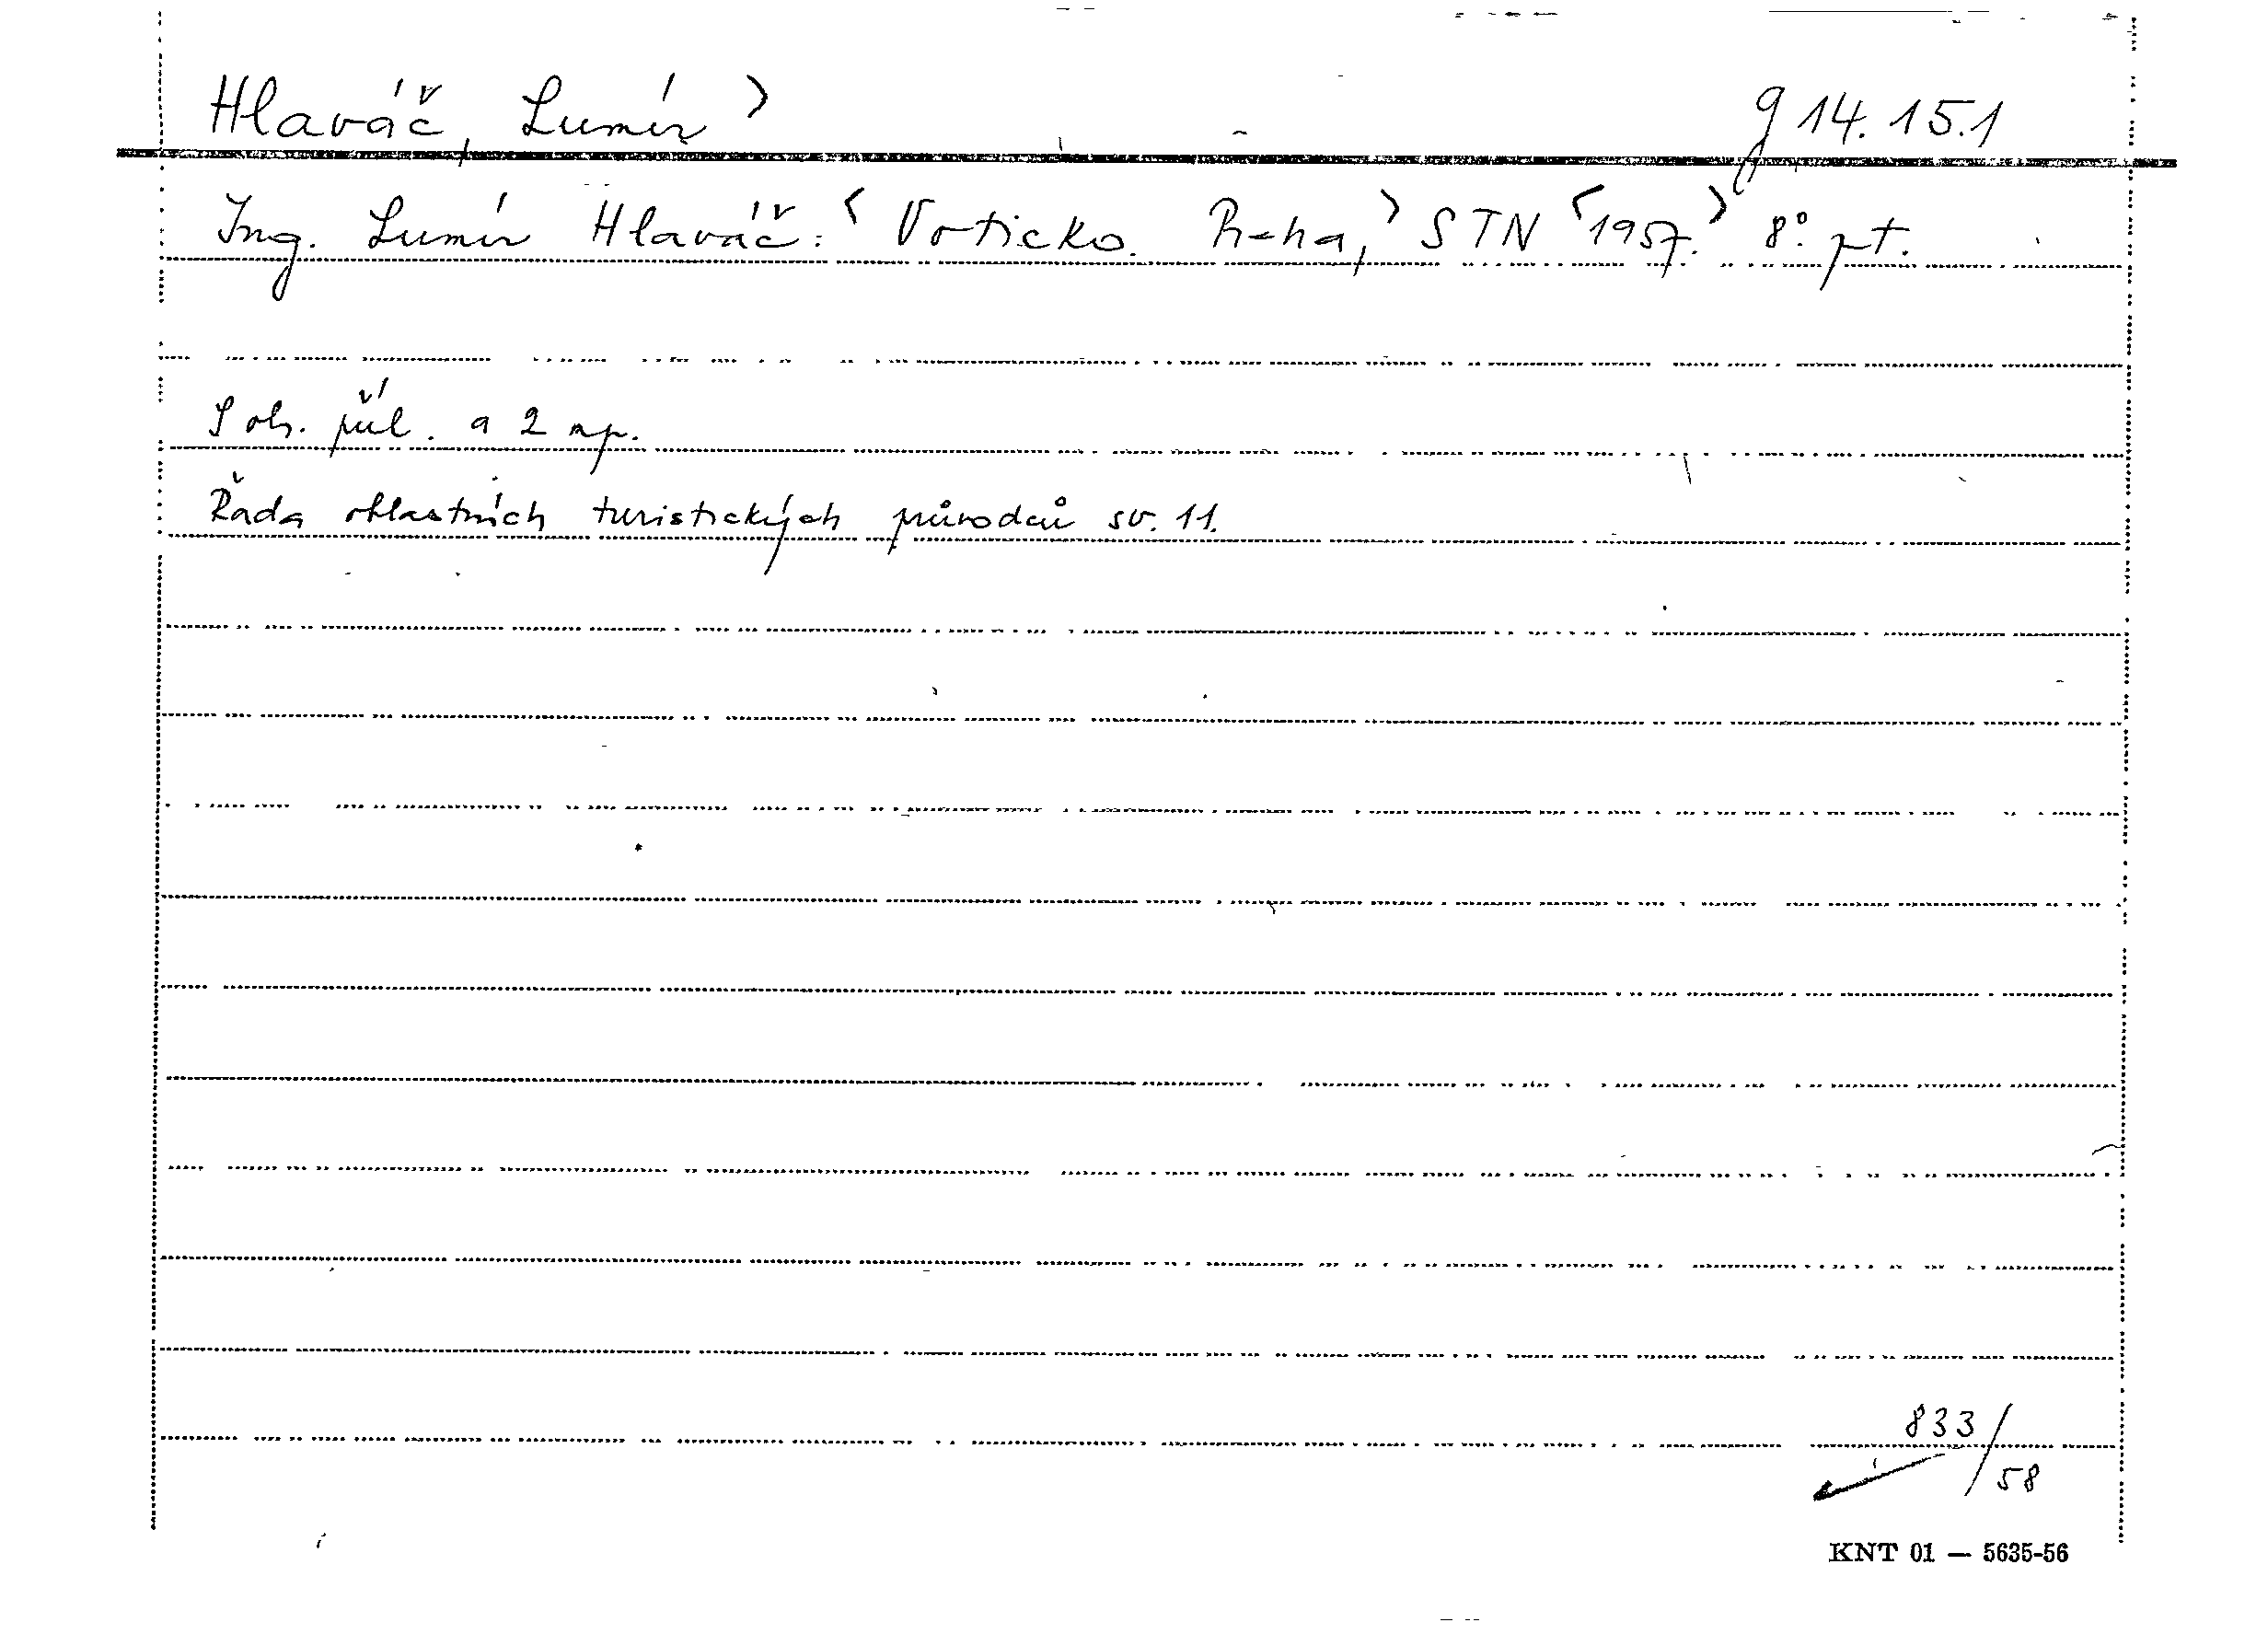 Hlaváč, Lumír >
g 14.15.1
Ing. Lumír Hlaváč: < Vorticko. Praha, > STN < 1957. > 8°. pt.
S ob. příl. a 2 mp.
Řada oblastních turistických průvodců sv. 11.
833/58
KNT 01 — 5635-56